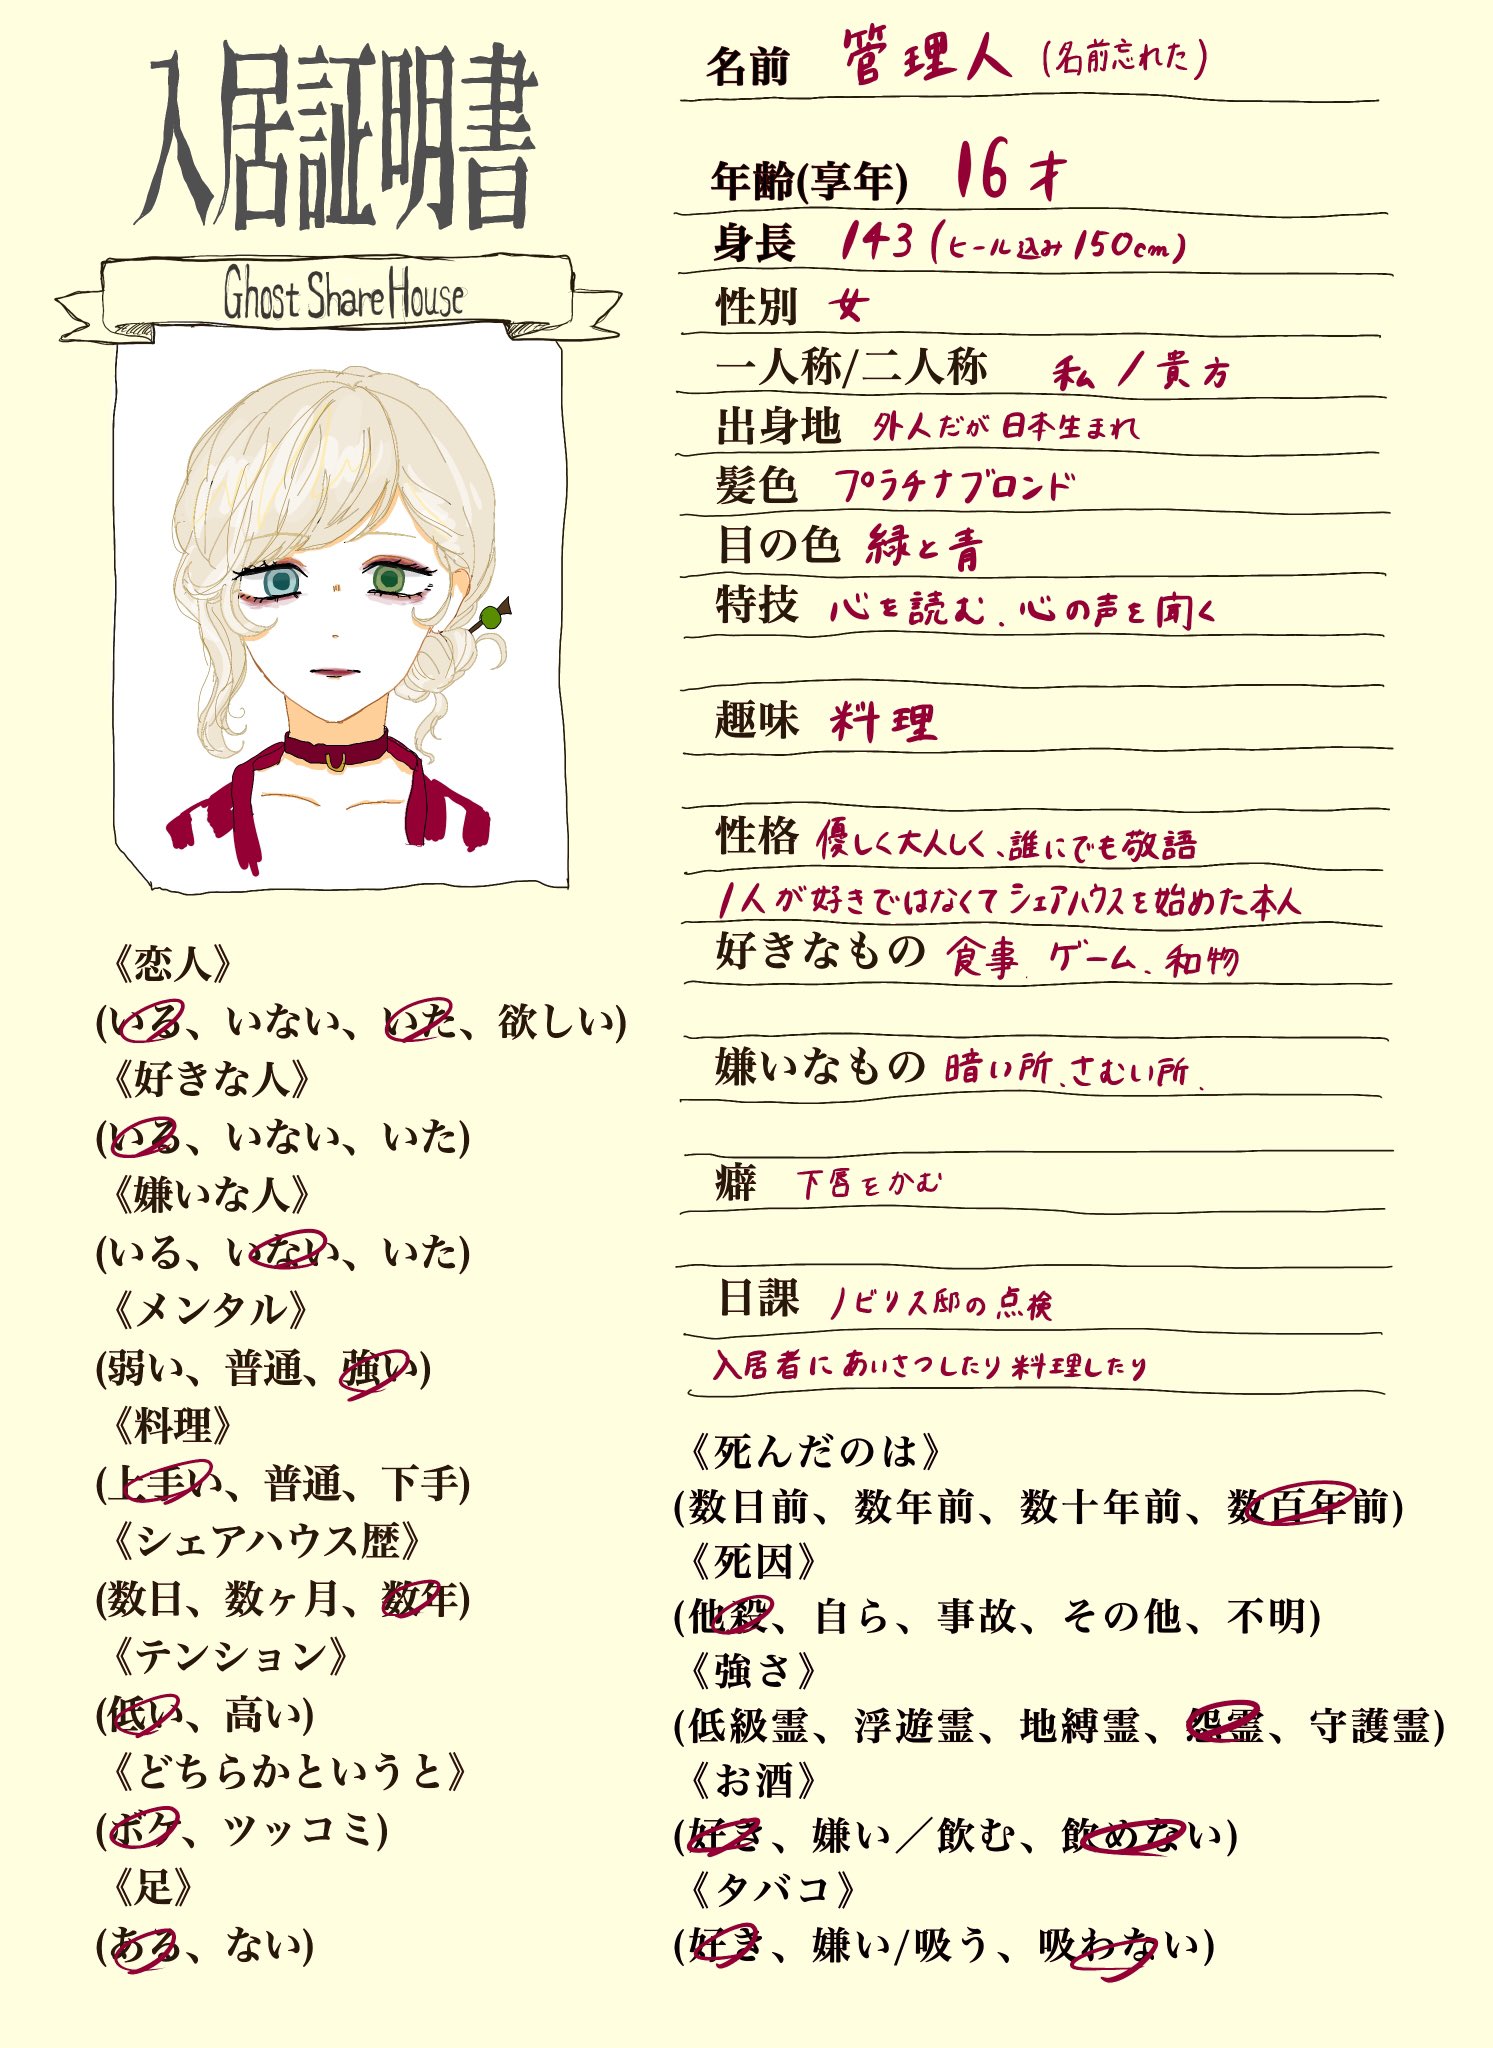 入居証明書
Ghost Share House
名前 管理人 (名前忘れた)
年齢(享年) 16才
身長 143 (ヒール込み150cm)
性別 女
一人称/二人称 私/貴方
出身地 外人だが日本生まれ
髪色 プラチナブロンド
目の色 緑と青
特技 心を読む、心の声を聞く
趣味 料理
性格 優しく大人しく、誰にでも敬語
1人が好きではなくてシェアハウスを始めた本人
好きなもの 食事、ゲーム、和物
嫌いなもの 暗い所、さむい所、
癖 下唇をかむ
日課 ノビリス邸の点検
入居者にあいさつしたり料理したり
《恋人》
(いる、いない、いた、欲しい)
《好きな人》
(いる、いない、いた)
《嫌いな人》
(いる、いない、いた)
《メンタル》
(弱い、普通、強い)
《料理》
(上手い、普通、下手)
《シェアハウス歴》
(数日、数ヶ月、数年)
《テンション》
(低い、高い)
《どちらかというと》
(ボケ、ツッコミ)
《足》
(ある、ない)
《死んだのは》
(数日前、数年前、数十年前、数百年前)
《死因》
(他殺、自ら、事故、その他、不明)
《強さ》
(低級霊、浮遊霊、地縛霊、怨霊、守護霊)
《お酒》
(好き、嫌い／飲む、飲めない)
《タバコ》
(好き、嫌い/吸う、吸わない)